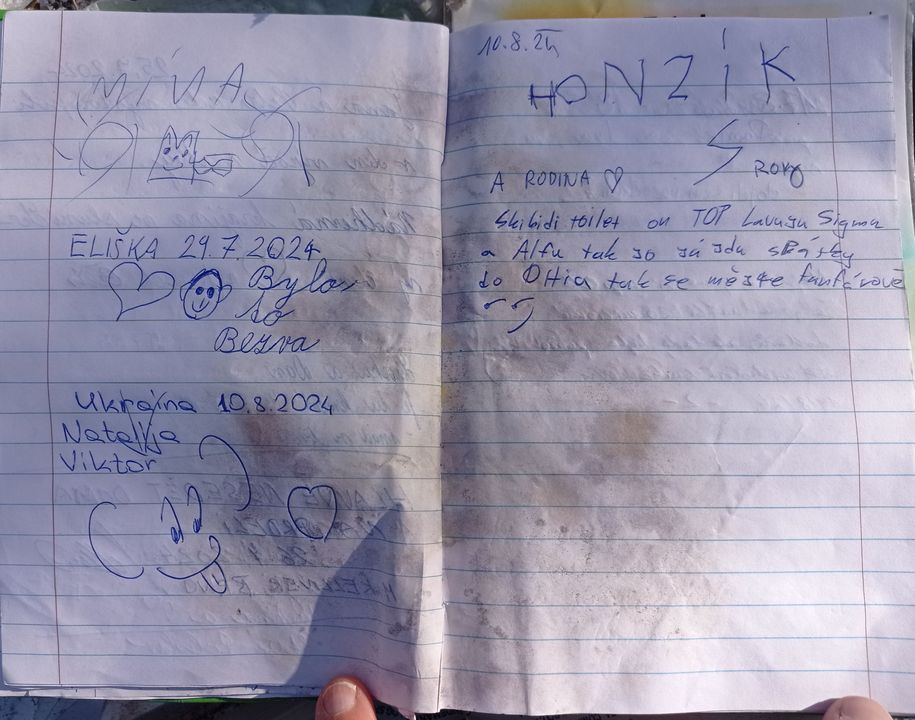 MÍNA
ELIŠKA 29.7.2024
Bylo
to
Bezva
Ukrajina 10.8.2024
Natalija
Viktor
10.8.24
HONZÍK
5 Rovy
A RODINA
Skibidi toilet on TOP Sigma
a Alfu tak jo já jdu spátky
do OHia tak se mějte fanfárově